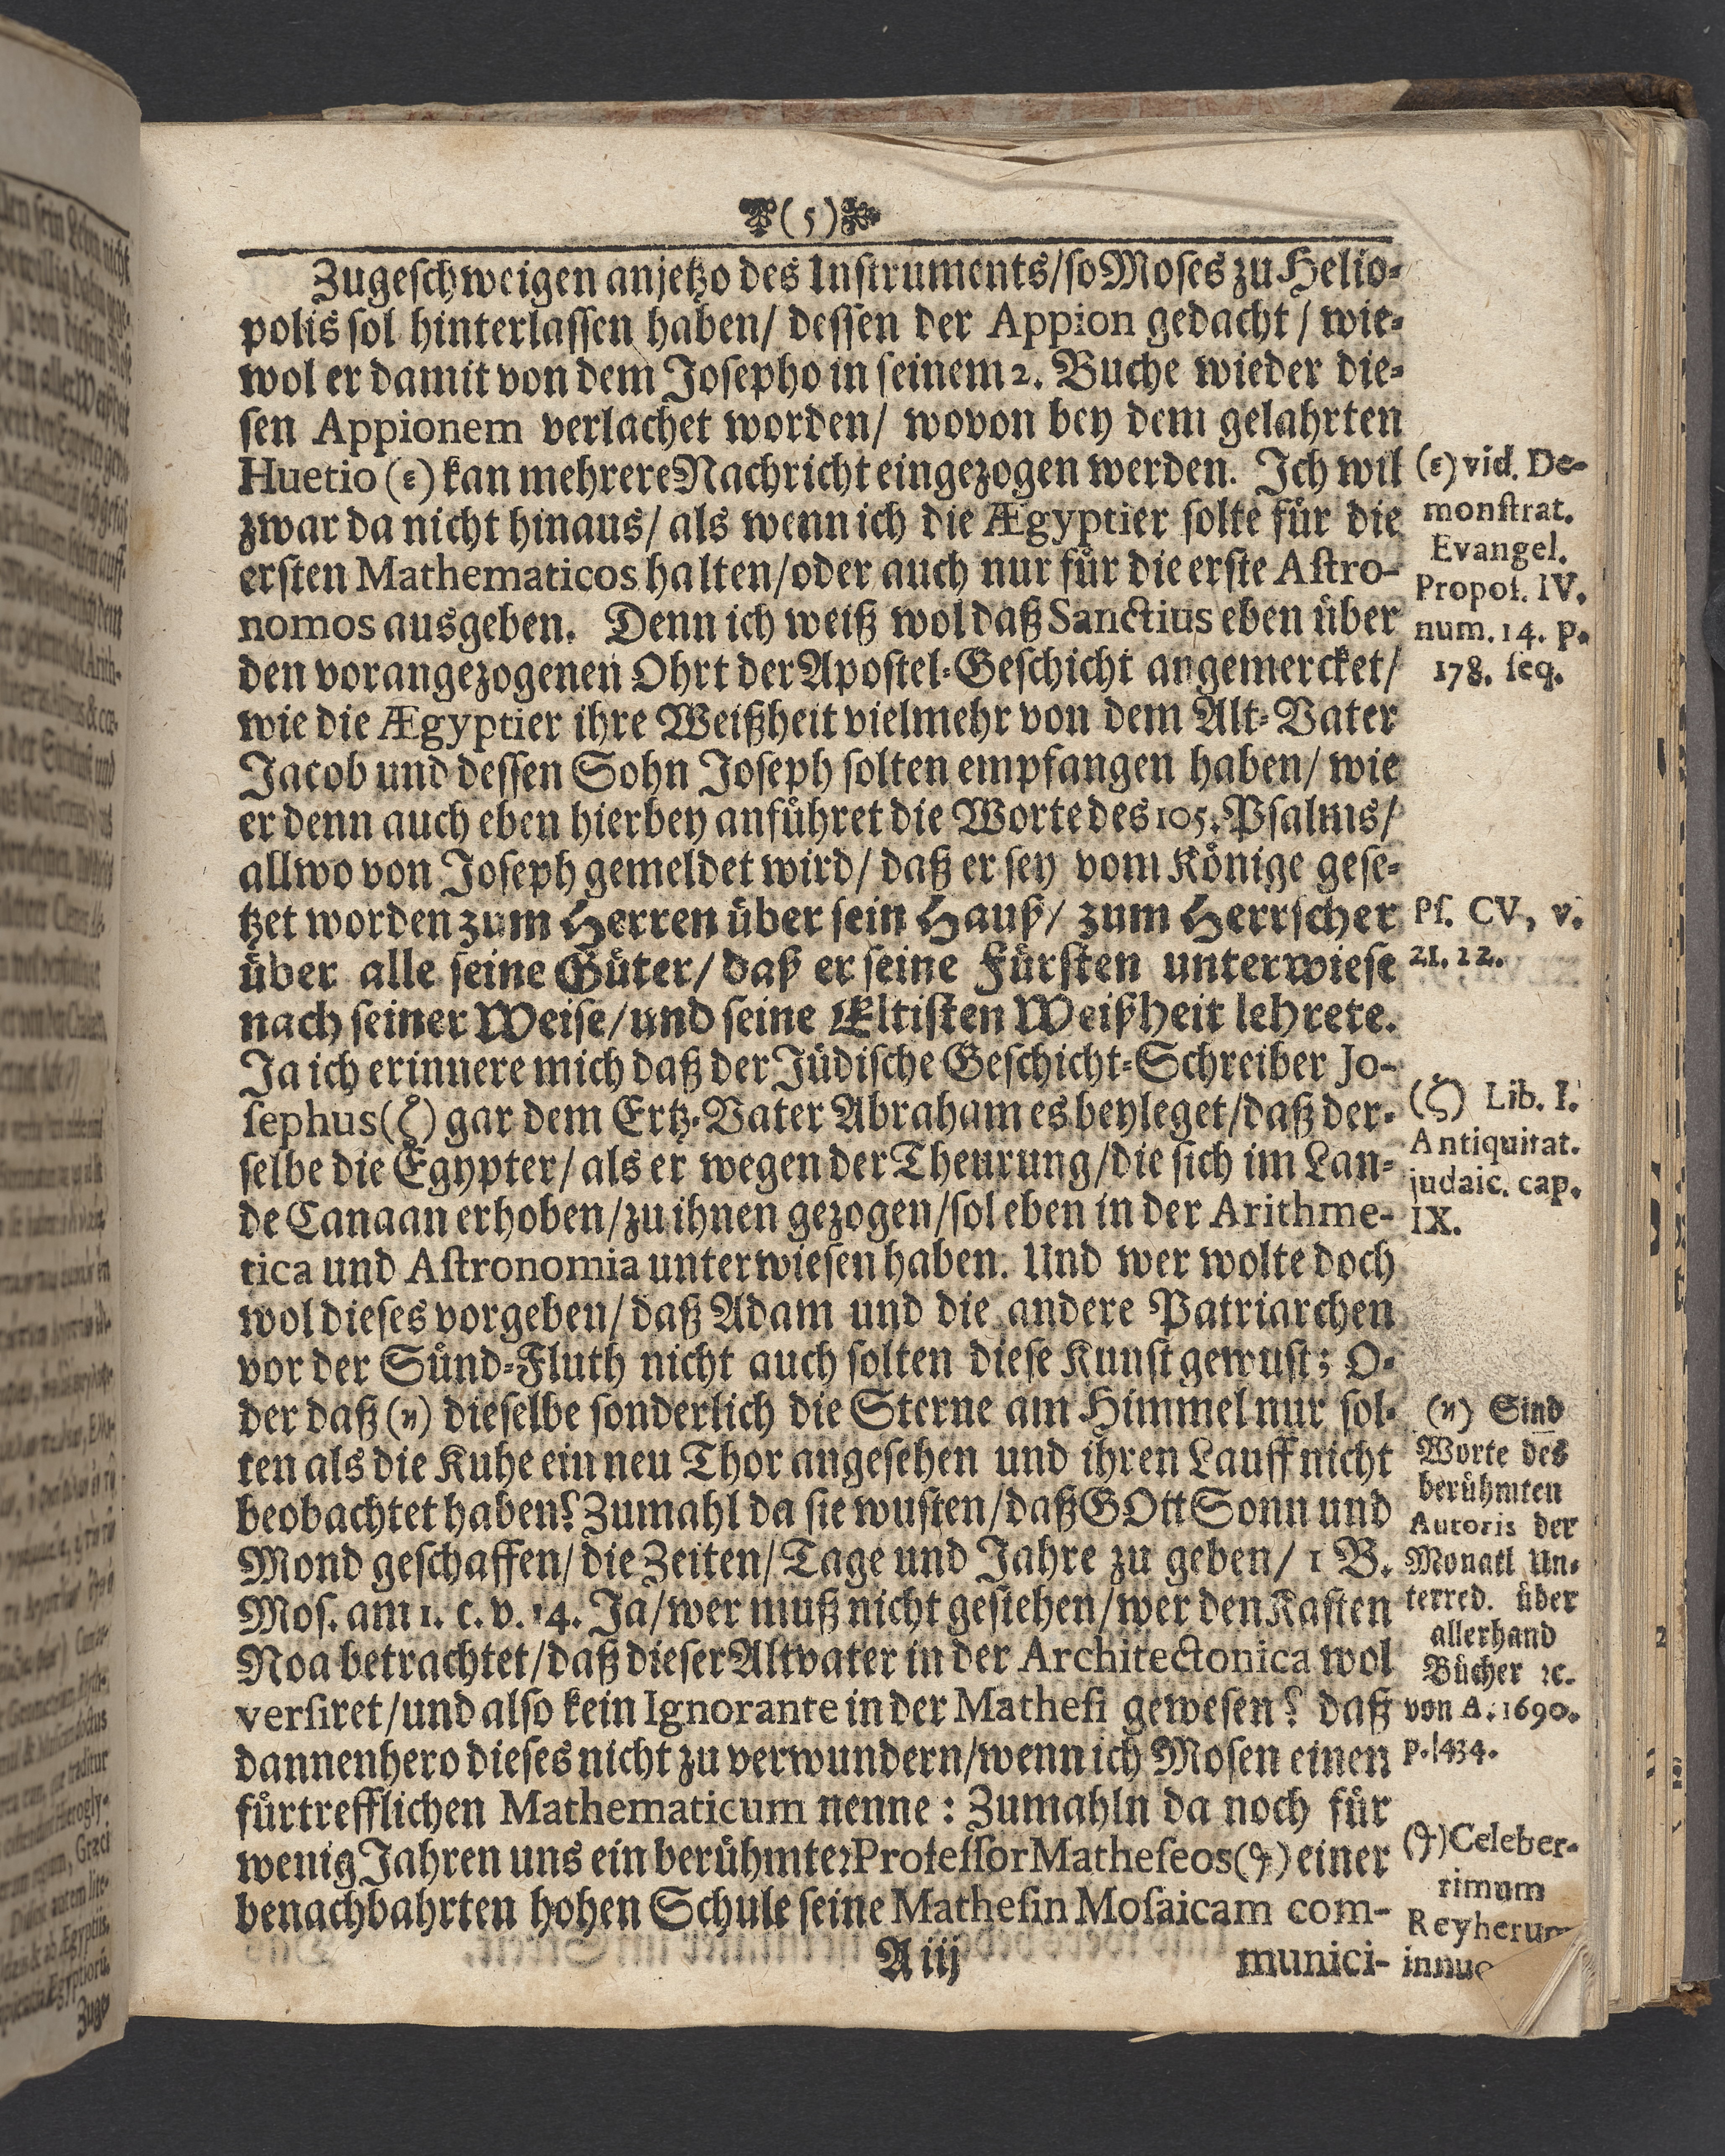 (5)
Zugeſchweigen anjetzo des Inſtruments/ſo Moſes zu Helio-
polis ſol hinterlaſſen haben/ deſſen der Appion gedacht/ wie-
wol er damit von dem Joſepho in ſeinem 2. Buche wieder die-
ſen Appionem verlachet worden/ wovon bey dem gelahrten
Huetio (ε) kan mehrere Nachricht eingezogen werden. Ich wil
zwar da nicht hinaus/ als wenn ich die Ægyptier ſolte für die
erſten Mathematicos halten/oder auch nur für die erſte Aſtro-
nomos ausgeben. Denn ich weiß wol daß Sanctius eben über
den vorangezogenen Ohrt der Apoſtel-Geſchicht angemercket/
wie die Ægyptier ihre Weißheit vielmehr von dem Alt-Vater
Jacob und deſſen Sohn Joſeph ſolten empfangen haben/ wie
er denn auch eben hierbey anführet die Worte des 105. Pſalms/
allwo von Joſeph gemeldet wird/ daß er ſey vom Könige geſe-
tzet worden zum Herren über ſein Hauß/ zum Herrſcher
über alle ſeine Güter/ daß er ſeine Fürſten unterwieſe
nach ſeiner Weiſe/und ſeine Eltiſten Weißheit lehrete.
Ja ich erinnere mich daß der Jüdiſche Geſchicht-Schreiber Jo-
ſephus (ζ) gar dem Ertz-Vater Abraham es beyleget/daß der-
ſelbe die Egypter/ als er wegen der Theurung/die ſich im Lan-
de Canaan erhoben/zu ihnen gezogen/ſol eben in der Arithme-
tica und Aſtronomia unterwieſen haben. Und wer wolte doch
wol dieſes vorgeben/ daß Adam und die andere Patriarchen
vor der Sünd-Fluth nicht auch ſolten dieſe Kunſt gewuſt; O-
der daß (η) dieſelbe ſonderlich die Sterne am Himmel nur ſol-
ten als die Kuhe ein neu Thor angeſehen und ihren Lauff nicht
beobachtet haben? Zumahl da ſie wuſten/daß GOtt Sonn und
Mond geſchaffen/ die Zeiten/ Tage und Jahre zu geben/ 1 B.
Moſ. am 1. c. v. 14. Ja/wer muß nicht geſtehen/wer den Kaſten
Noa betrachtet/daß dieſer Altvater in der Architectonica wol
verſiret/und alſo kein Ignorante in der Matheſi geweſen? daß
dannenhero dieſes nicht zu verwundern/wenn ich Moſen einen
fürtrefflichen Mathematicum nenne: Zumahln da noch für
wenig Jahren uns ein berühmter Profeſſor Matheſeos (ϑ) einer
benachbahrten hohen Schule ſeine Matheſin Moſaicam com-
A iij munici-
(ε) vid. De-
monſtrat.
Evangel.
Propoſ. IV.
num. 14. p.
178. ſeq.
Pſ. CV, v.
21. 22.
(ζ) Lib. I.
Antiquitat.
judaic. cap.
IX.
(η) Sind
Worte des
berühmten
Autoris der
Monatl Un-
terred. über
allerhand
Bücher ꝛc.
von A. 1690.
p. 434.
(ϑ) Celeber-
rimum
Reyherum
innuo